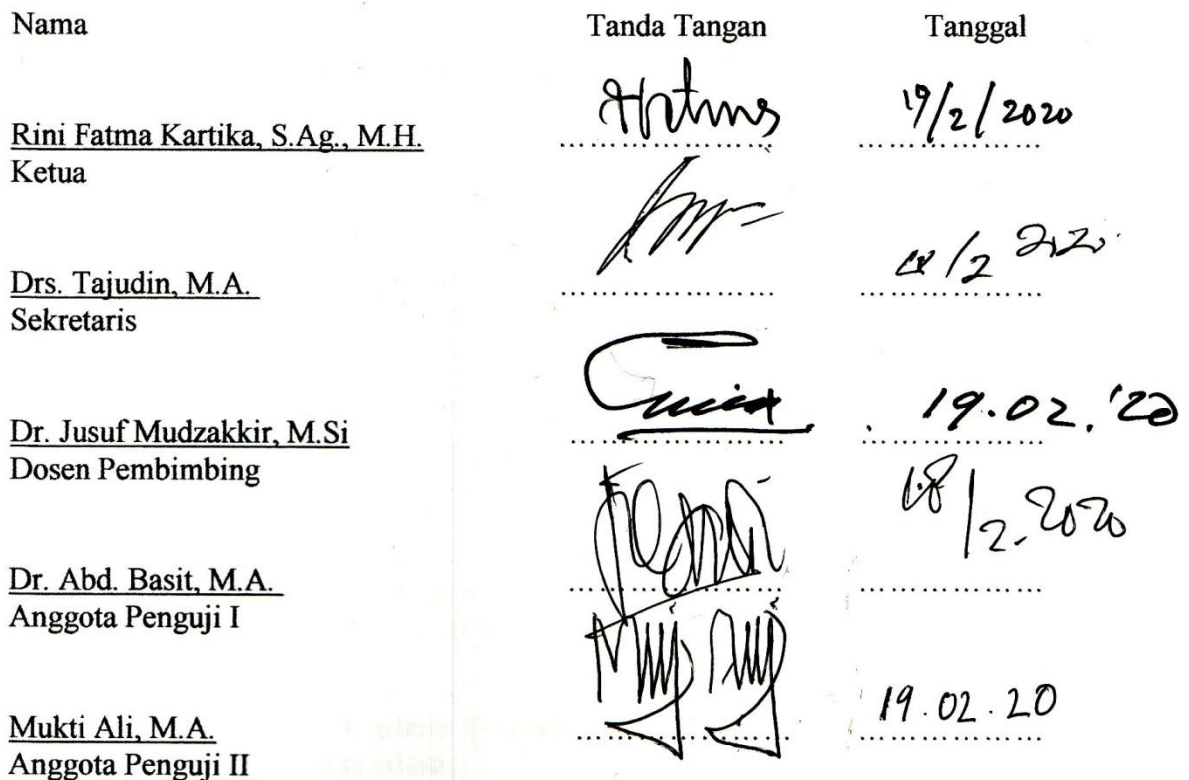 Nama Tanda Tangan Tanggal
19/2/2020
Rini Fatma Kartika, S.Ag., M.H. .................... ..................
Ketua
/2 2020
Drs. Tajudin, M.A. .................... ..................
Sekretaris
19.02.'20
Dr. Jusuf Mudzakkir, M.Si .................... ..................
Dosen Pembimbing
18/2-2020
Dr. Abd. Basit, M.A. .................... ..................
Anggota Penguji I
19.02.20
Mukti Ali, M.A. .................... ..................
Anggota Penguji II